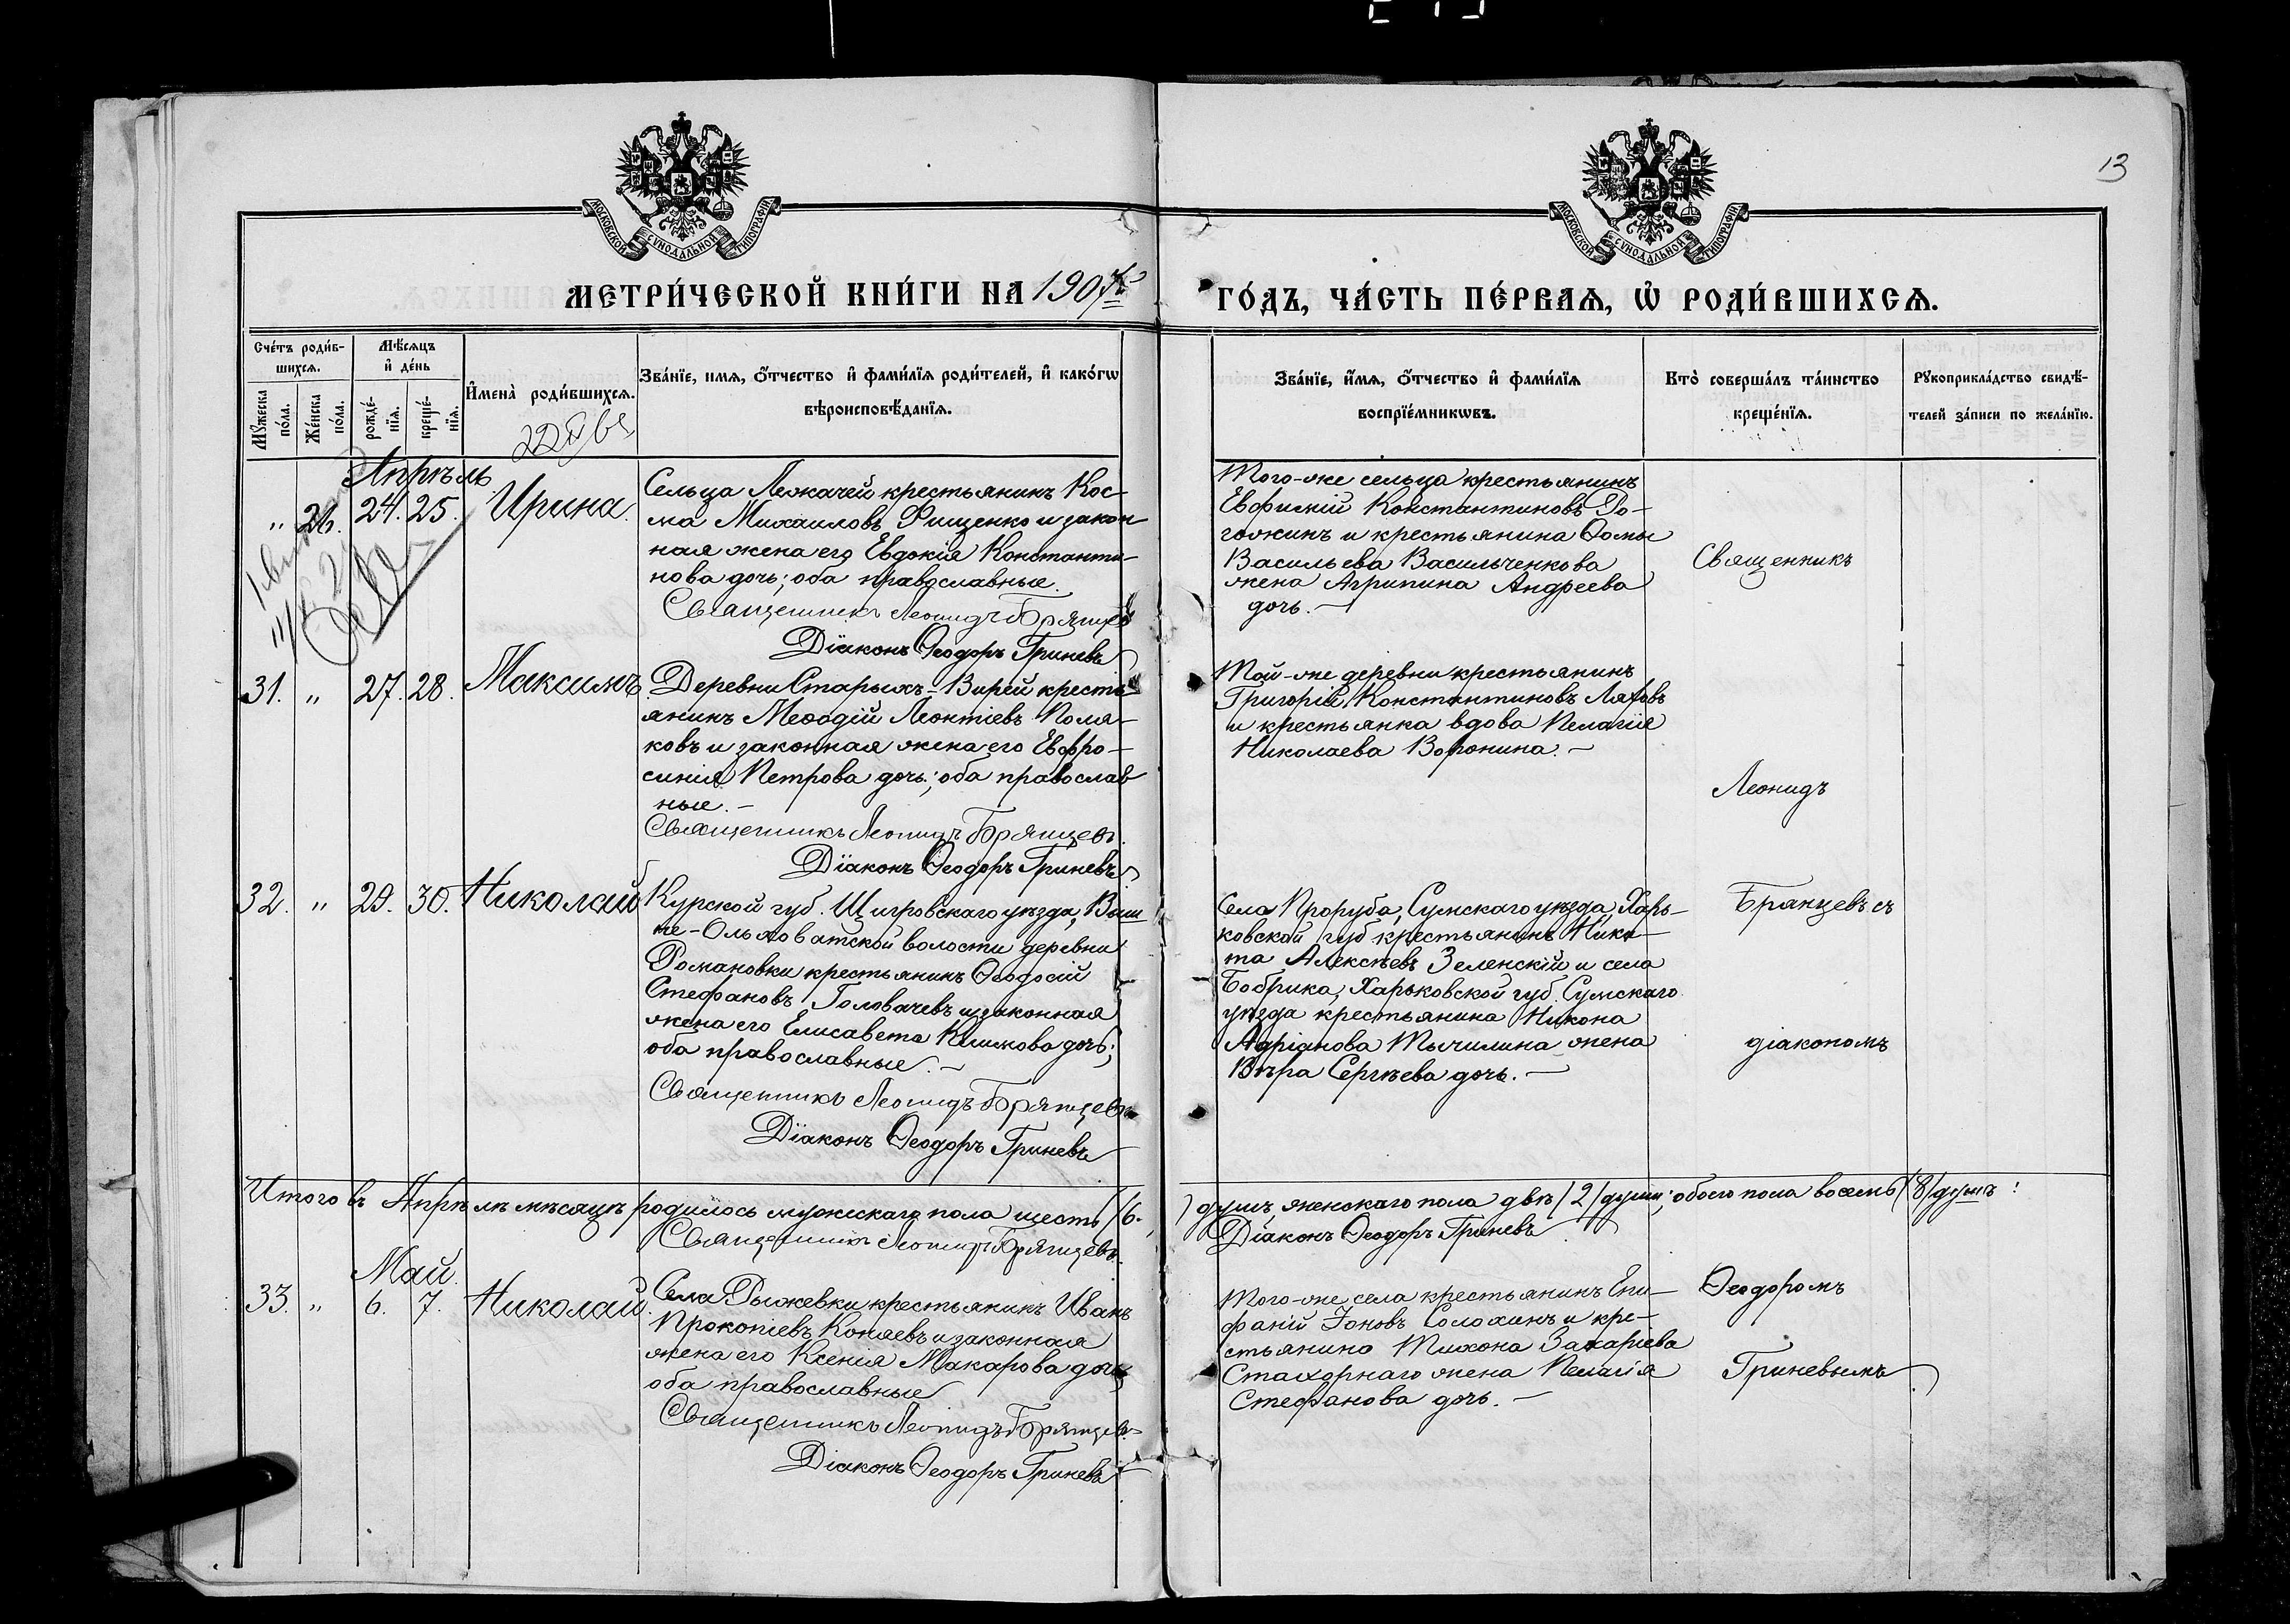 13
МОСКОВСКОЙ СУНОДАЛЬНОЙ ТИПОГРАФІИ
МОСКОВСКОЙ СУНОДАЛЬНОЙ ТИПОГРАФІИ
МЕТРИ́ЧЕСКОЙ КНИ́ГИ НА 1907й
ГО́ДЪ, ЧА́СТЬ ПЕ́РВАѦ, Ѡ҆ РОДИ́ВШИХСѦ.
Сче́тъ роди́в-
шихсѧ.
Мꙋ́жеска по́ла.
Же́нска по́ла.
Мѣ́сѧцъ
и҆ де́нь
рожде́-
нїѧ.
креще́-
нїѧ.
И҆мена̀ роди́вшихсѧ.
Зва́нїе, имѧ, о҆́тчество и҆ фами́лїѧ роди́телей, и҆ како́гѡ
вѣроисповѣ́данїѧ.
Зва́нїе, и҆́мѧ, о҆́тчество и҆ фами́лїѧ
воспрїе́мникѡвъ.
Кто̀ соверша́лъ та́инство
креще́нїѧ.
Рꙋкоприкла́дство свидѣ́-
телей за́писи по жела́нїю.
Апрѣль
" 26. 24. 25. Ирина.
Сельца Лежачей крестьянинъ Кос-
ма Михаиловъ Фищенко и закон
ная жена его Евдокія Константи-
нова дочь; оба православные.
Священникъ Леонидъ Брянцевъ
Діаконъ Ѳеодоръ Гриневъ
Того-же сельца крестьянинъ
Евфимій Константиновъ Ро-
гожинъ и крестьянина Ѳомы
Васильева Васильченкова
жена Агрипина Андреева
дочь.—
Священникъ
31. " 27. 28. Максимъ.
Деревни Старыхъ-Вирей кресть-
янинъ Меѳодій Леонтіевъ Поля-
ковъ и законная жена его Евфро-
синія Петрова дочь; оба православ
ные.—
Священникъ Леонидъ Брянцевъ.
Діаконъ Ѳеодоръ Гриневъ
Той-же деревни крестьянинъ
Григорій Константиновъ Ляховъ
и крестьянка вдова Пелагія
Николаева Воронина.—
Леонидъ
32. " 29. 30. Николай
Курской губ. Щигровскаго уѣзда, Выш
не-Ольховатской волости деревни
Романовки крестьянинъ Ѳеодосій
Стефановъ Головачевъ и законная
жена его Елисавета Климова дочь;
оба православные.—
Священникъ Леонидъ Брянцевъ
Діаконъ Ѳеодоръ Гриневъ
Села Проруба, Сумскаго уѣзда, Харь-
ковской губ крестьянинъ Ники-
та Алексѣевъ Зеленскій и села
Бобрика, Харьковской губ. Сумскаго
уѣзда крестьянина Никона
Адріанова Тычилина жена
Вѣра Сергѣева дочь.—
Бранцевъ съ
діакономъ
Итого въ Апрѣлѣ мѣсяцѣ родилось мужескаго пола шесть /6.
/ душъ женскаго пола двѣ /2/ души; обоего пола восемь /8/ душъ:
Священникъ Леонидъ Брянцевъ.
Діаконъ Ѳеодоръ Гриневъ
Май.
33. " 6. 7. Николай.
Села Рыжевки крестьянинъ Иванъ
Прокопіевъ Коняевъ и законная
жена его Ксенія Макарова дочь;
оба православные
Священникъ Леонидъ Брянцевъ.
Діаконъ Ѳеодоръ Гриневъ
Того-же села крестьянинъ Епи-
фаній Іоновъ Солохинъ и кре-
стьянина Тихона Захаріева
Стахорнаго жена Пелагія
Стефанова дочь.—
Ѳеодоромъ
Гриневымъ